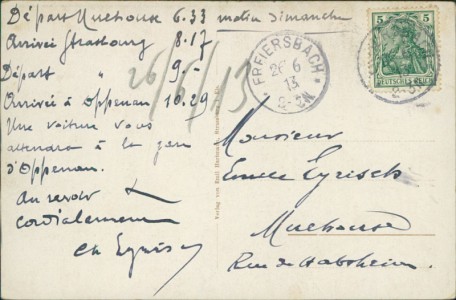 Départ Mulhouse 6.33 matin dimanche
Arrivée Strasbourg 8.17
Départ " 9.-
Arrivée à Oppenau 10.29
Une voiture vous
attendra à la gare
d'Oppenau.
Au revoir
cordialement
26/6/13
FREIERSBACH
26 6
13
2-3N
5 5
DEUTSCHES REICH
Monsieur
Emile
Mulhouse
Rue de Habsheim